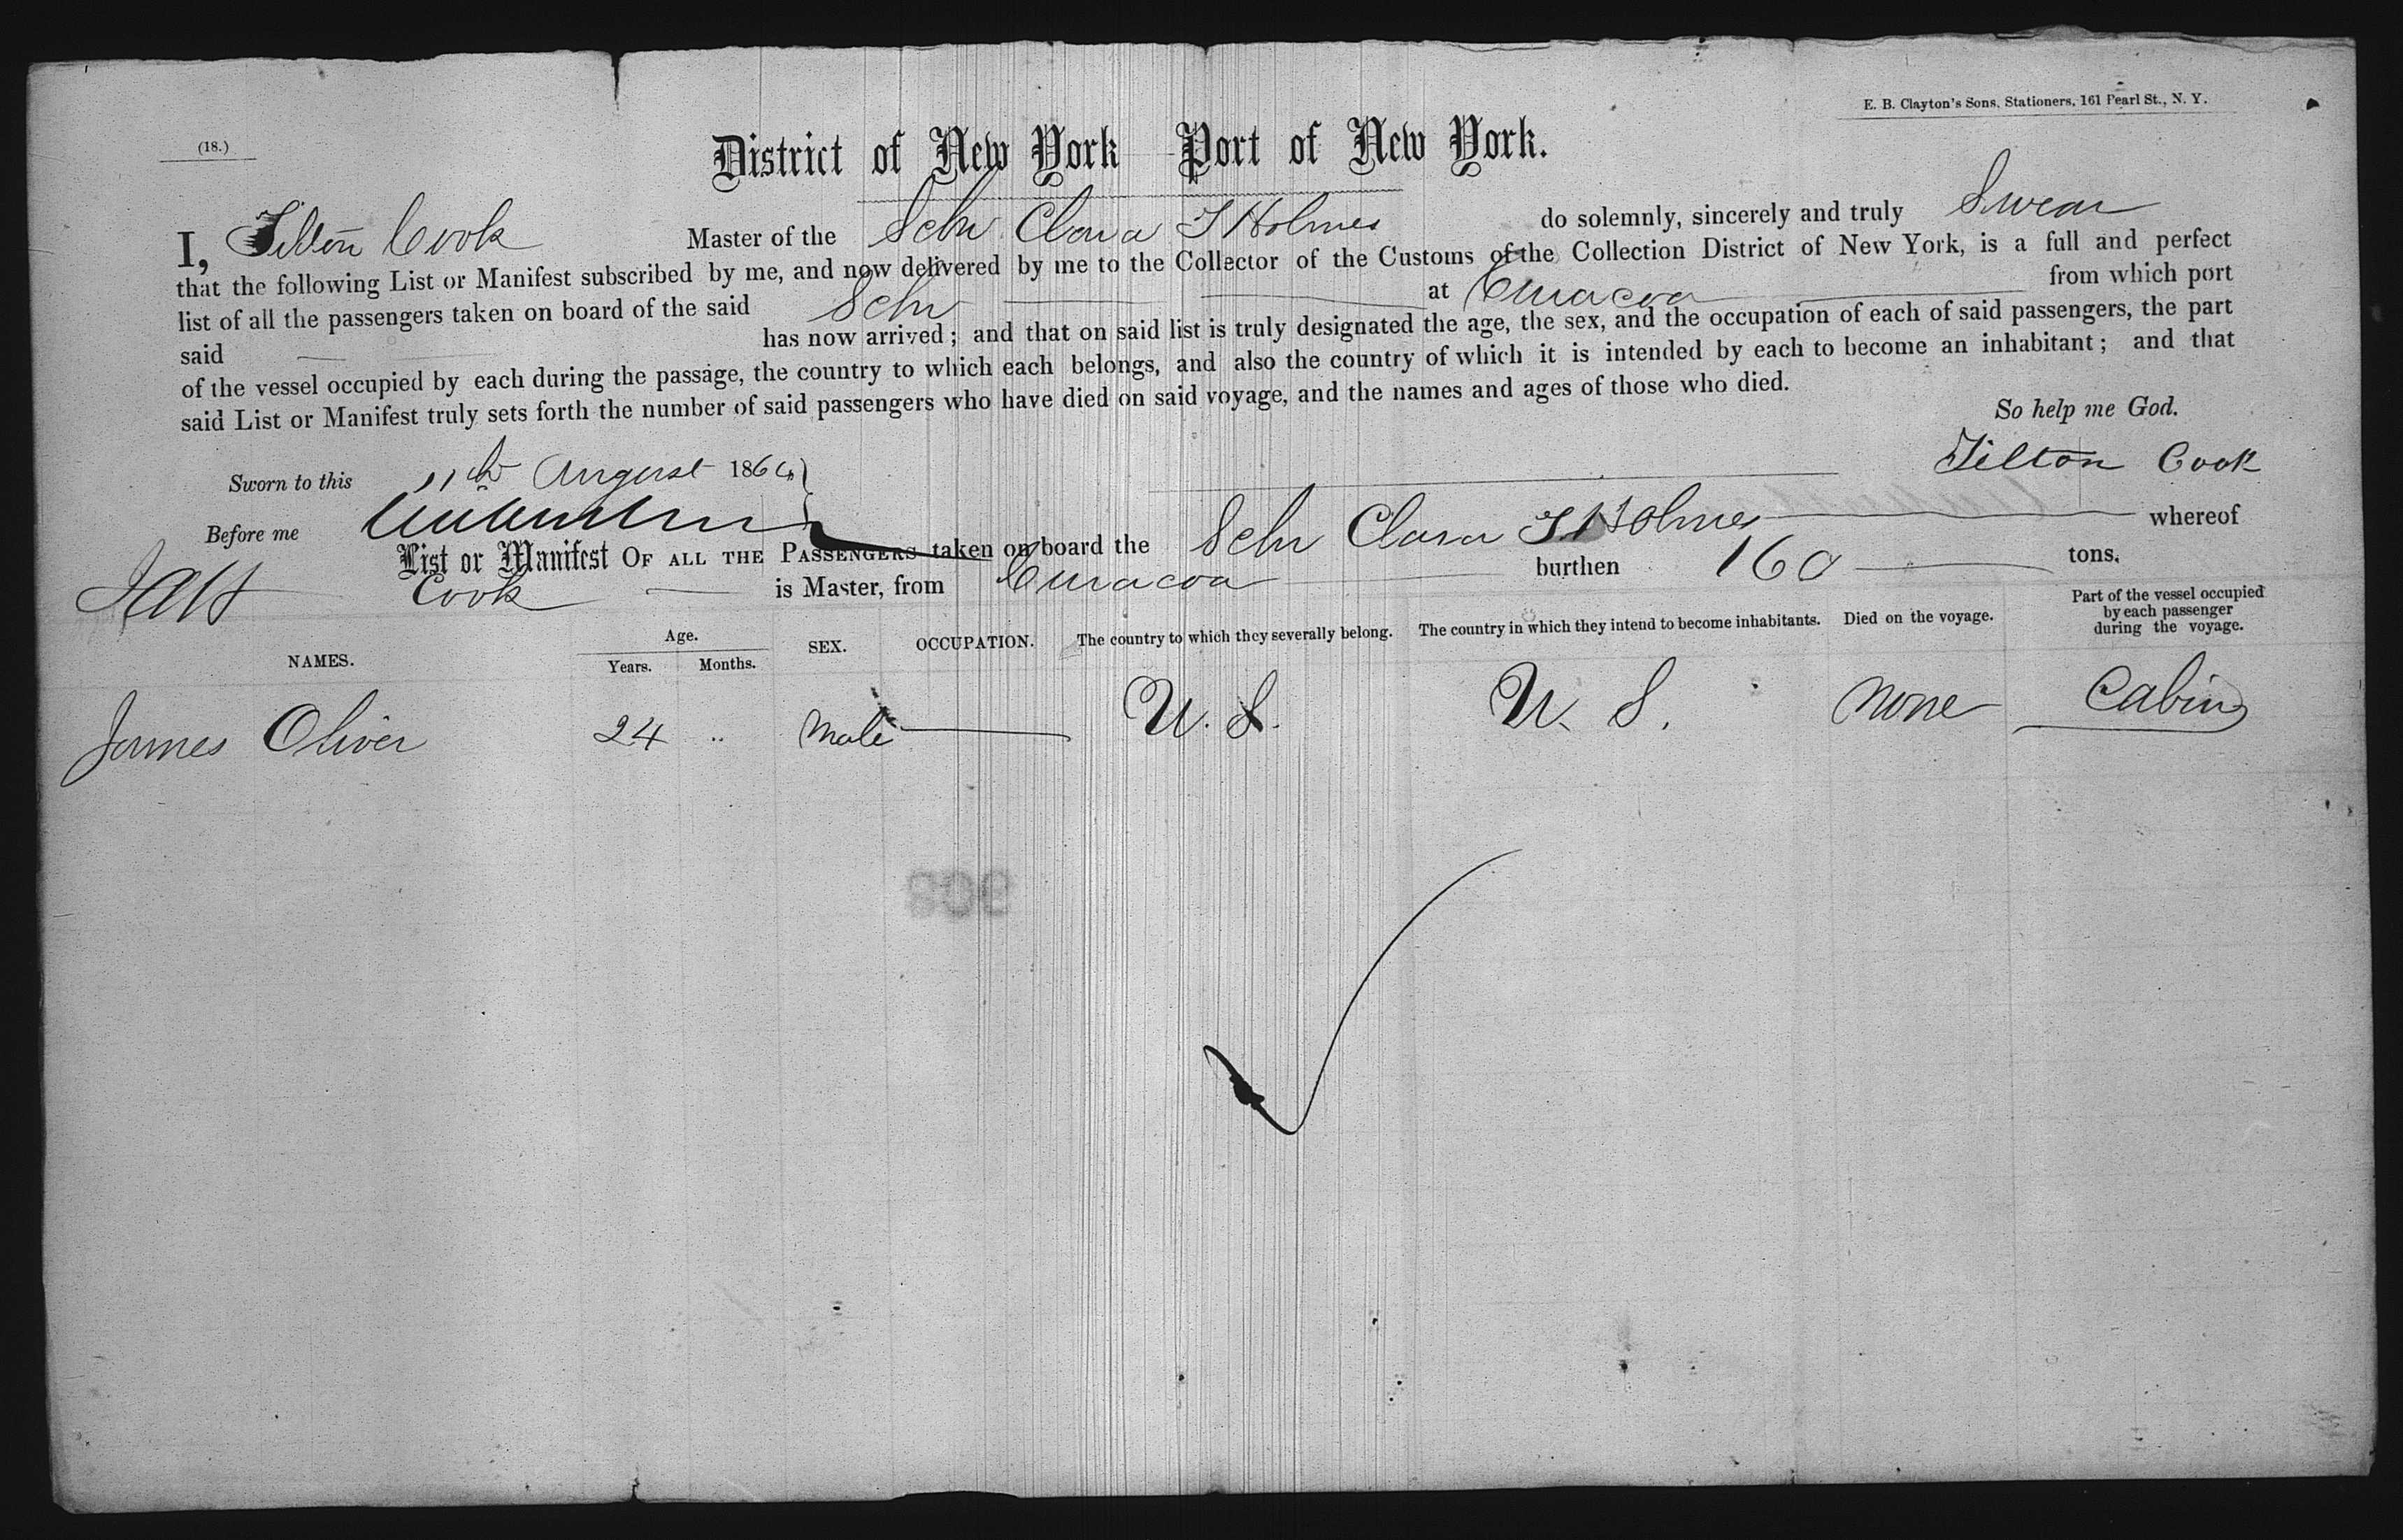 E. B. Clayton's Sons, Stationers, 161 Pearl St., N. Y.
(18.)
District of New York Port of New York.
I, Tilton Cook Master of the Schr Clara T Holmes do solemnly, sincerely and truly Swear
that the following List or Manifest subscribed by me, and now delivered by me to the Collector of the Customs of the Collection District of New York, is a full and perfect
list of all the passengers taken on board of the said Schr at Curacoa from which port
said has now arrived; and that on said list is truly designated the age, the sex, and the occupation of each of said passengers, the part
of the vessel occupied by each during the passage, the country to which each belongs, and also the country of which it is intended by each to become an inhabitant; and that
said List or Manifest truly sets forth the number of said passengers who have died on said voyage, and the names and ages of those who died.
So help me God.
Sworn to this 11th August 1864 Tilton Cook
Before me
List or Manifest OF ALL THE PASSENGERS taken on board the Schr Clara T Holmes whereof
Cook is Master, from Curacoa burthen 160 tons.
NAMES. Age. Years. Months. SEX. OCCUPATION. The country to which they severally belong. The country in which they intend to become inhabitants. Died on the voyage. Part of the vessel occupied by each passenger during the voyage.
James Oliver 24 .. Male U. S. U. S. None Cabin